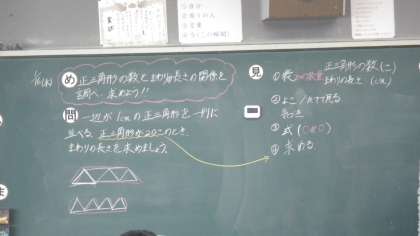 め 正三角形の数とまわりの長さの関係を
調べ、求めよう!!
問 一辺が1cmの正三角形を一列に
並べる。正三角形が20このとき、
まわりの長さを求めましょう。
見
①表 2つの数量 正三角形の数(こ)
まわりの長さ(cm)
②よこ/たて見る
きまり
③式(○と□)
④求める